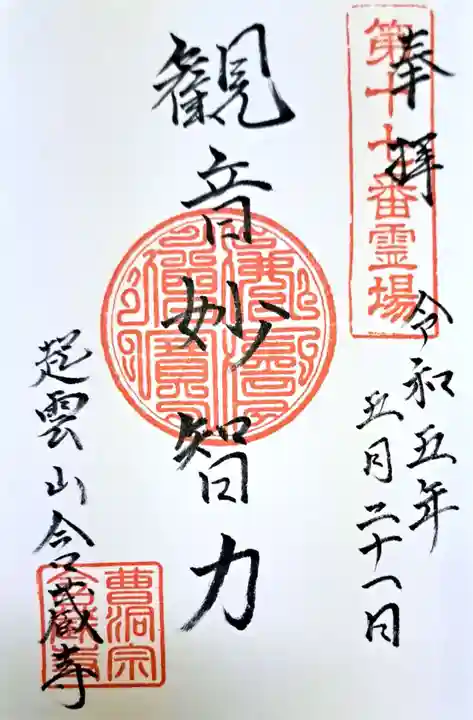 第十七番霊場
奉拝
令和五年
五月二十一日
観音妙智力
起雲山含蔵寺
曹洞宗
含蔵寺